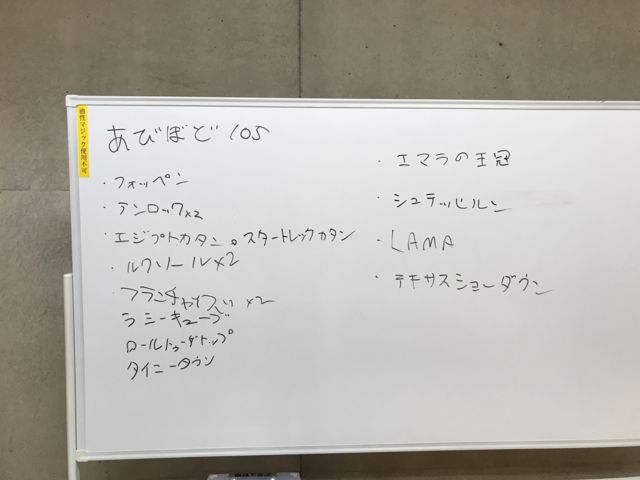 油性マジック使用不可
あびぼど 105
・フォッペン
・テンロック×2
・エジプトカタン。スタートレックカタン
・ルクソール×2
・フランチャイズ ×2
ラミーキューブ
ロールトゥーザトップ
タイニータウン
・エマラの王冠
・シュテッヒルン
・LAMA
・テキサスショーダウン